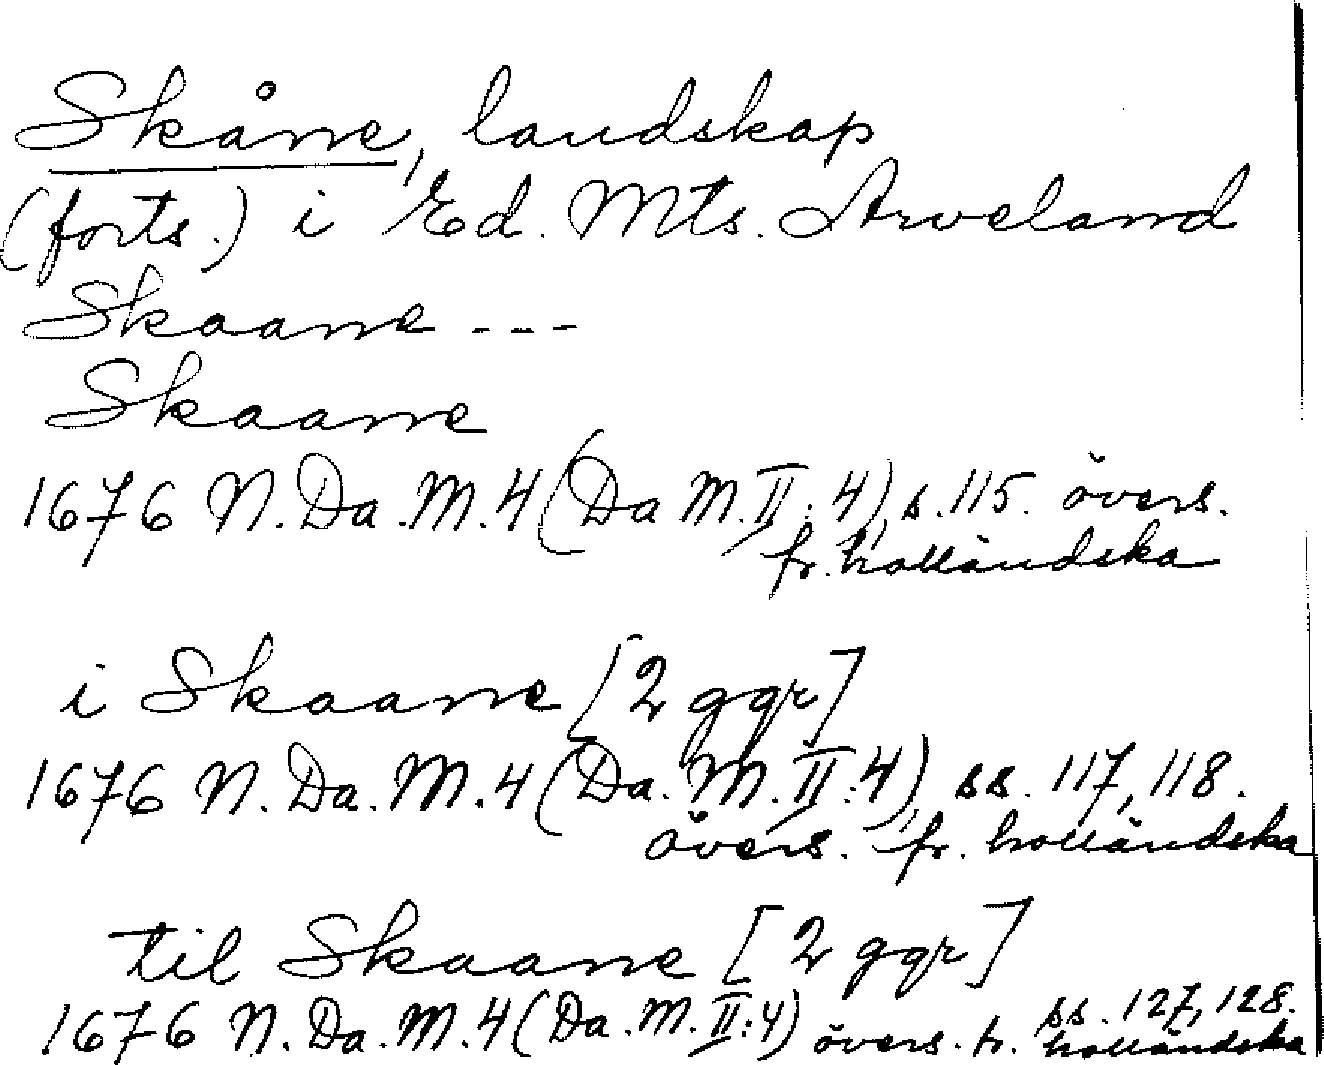 Skåne, landskap
(forts.) i Ed. Mts. Arveland
Skaane ---
Skaane
1676 N.Da.M.4 (Da M.II:4), s.115. övers.
fr. holländska
i Skaane [2 ggr]
1676 N.Da.M.4 (Da.M.II:4), ss. 117, 118.
övers. fr. holländska
til Skaane [2 ggr]
1676 N.Da.M.4 (Da.M.II:4) ss. 127, 128.
övers. fr. holländska